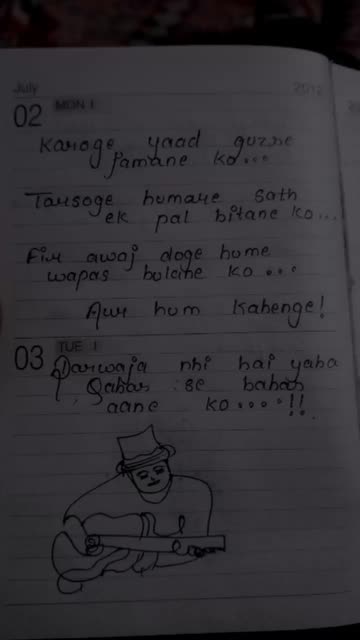 July 2012
02 MON
Karoge yaad guzre
jamane ko...
Tarsoge humare sath
ek pal bitane ko...
Fir awaj doge hume
wapas bulane ko...
Aur hum Kahenge!
03 TUE
Darwaja nhi hai yaha
Qabar se bahar
aane ko....!!